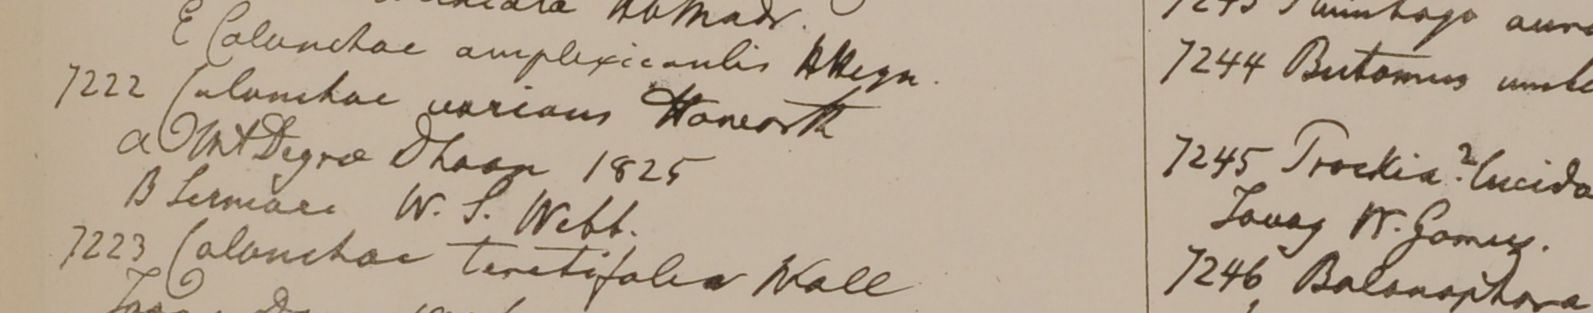 E Calanchoe amplexicaulis
7222 Calanchoe varians Haworth
a Mt Degree Dhoon 1825
B Sermore W. S. Webb.
7223 Calanchoe teretifolia Wall
7244 Butomus umbe
7245 Trockia? lucida
Tavoy W. Gomez.
7246 Balanophora